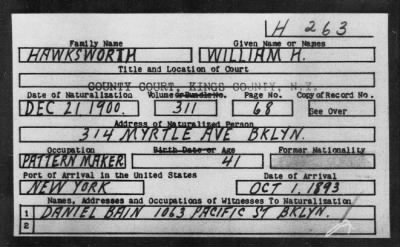 H 263
Family Name Given Name or Names
HAWKSWORTH WILLIAM H.
Title and Location of Court
COUNTY COURT, KINGS COUNTY, N.Y.
Date of Naturalization Volume or Bundle No. Page No. Copy of Record No.
DEC 21 1900. 311 68 See Over
Address of Naturalized Person
314 MYRTLE AVE BKLYN.
Occupation Birth Date or Age Former Nationality
PATTERN MAKER 41
Port of Arrival in the United States Date of Arrival
NEW YORK OCT 1. 1893
Names, Addresses and Occupations of Witnesses To Naturalization
1 DANIEL BAIN 1063 PACIFIC ST BKLYN.
2